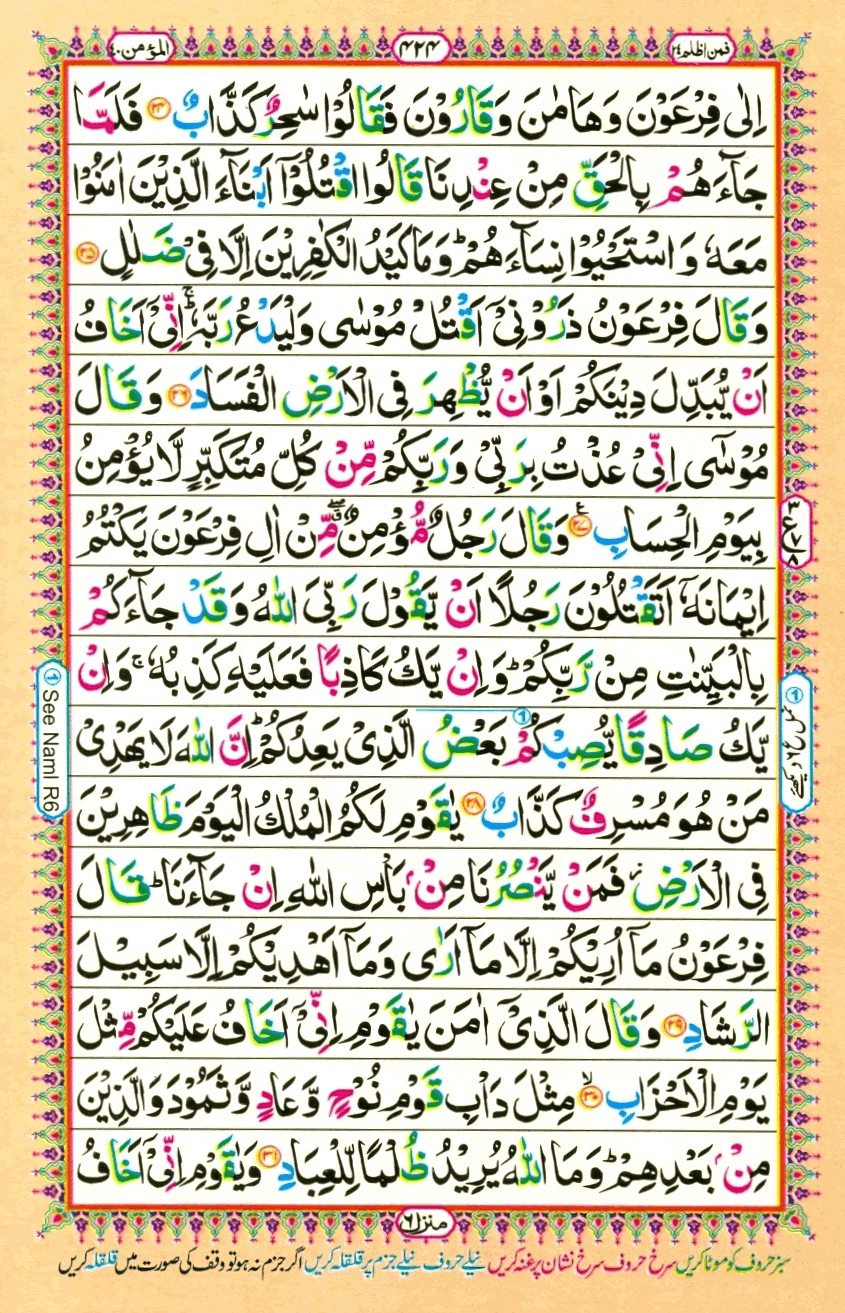 فمن اظلم ٢٤
٤٢٤
المؤمن ٤٠
اِلٰى فِرْعَوْنَ وَهَامٰنَ وَقَارُوْنَ فَقَالُوْا سٰحِرٌ كَذَّابٌ ﴿٢٤﴾ فَلَمَّا
جَآءَهُمْ بِالْحَقِّ مِنْ عِنْدِنَا قَالُوا اقْتُلُوْٓا اَبْنَآءَ الَّذِيْنَ اٰمَنُوْا
مَعَهٗ وَ اسْتَحْيُوْا نِسَآءَهُمْ ؕ وَمَا كَيْدُ الْكٰفِرِيْنَ اِلَّا فِيْ ضَلٰلٍ ﴿٢٥﴾
وَقَالَ فِرْعَوْنُ ذَرُوْنِيْٓ اَقْتُلْ مُوْسٰى وَلْيَدْعُ رَبَّهٗ ۚ اِنِّيْٓ اَخَافُ
اَنْ يُّبَدِّلَ دِيْنَكُمْ اَوْ اَنْ يُّظْهِرَ فِى الْاَرْضِ الْفَسَادَ ﴿٢٦﴾ وَقَالَ
مُوْسٰٓى اِنِّيْ عُذْتُ بِرَبِّيْ وَرَبِّكُمْ مِّنْ كُلِّ مُتَكَبِّرٍ لَّا يُؤْمِنُ
بِيَوْمِ الْحِسَابِ ﴿٢٧﴾ ع وَقَالَ رَجُلٌ مُّؤْمِنٌ ۖ مِّنْ اٰلِ فِرْعَوْنَ يَكْتُمُ
اِيْمَانَهٗٓ اَتَقْتُلُوْنَ رَجُلًا اَنْ يَّقُوْلَ رَبِّيَ اللّٰهُ وَقَدْ جَآءَكُمْ
بِالْبَيِّنٰتِ مِنْ رَّبِّكُمْ ؕ وَاِنْ يَّكُ كَاذِبًا فَعَلَيْهِ كَذِبُهٗ ۚ وَاِنْ
يَّكُ صَادِقًا يُّصِبْكُمْ ① بَعْضُ الَّذِيْ يَعِدُكُمْ ؕ اِنَّ اللّٰهَ لَا يَهْدِيْ
مَنْ هُوَ مُسْرِفٌ كَذَّابٌ ﴿٢٨﴾ يٰقَوْمِ لَكُمُ الْمُلْكُ الْيَوْمَ ظَاهِرِيْنَ
فِى الْاَرْضِ ؗ فَمَنْ يَّنْصُرُنَا مِنْۢ بَاْسِ اللّٰهِ اِنْ جَآءَنَا ؕ قَالَ
فِرْعَوْنُ مَآ اُرِيْكُمْ اِلَّا مَآ اَرٰى وَمَآ اَهْدِيْكُمْ اِلَّا سَبِيْلَ
الرَّشَادِ ﴿٢٩﴾ وَقَالَ الَّذِيْٓ اٰمَنَ يٰقَوْمِ اِنِّيْٓ اَخَافُ عَلَيْكُمْ مِّثْلَ
يَوْمِ الْاَحْزَابِ ﴿٣٠﴾ۙ مِثْلَ دَاْبِ قَوْمِ نُوْحٍ وَّعَادٍ وَّثَمُوْدَ وَالَّذِيْنَ
مِنْۢ بَعْدِهِمْ ؕ وَمَا اللّٰهُ يُرِيْدُ ظُلْمًا لِّلْعِبَادِ ﴿٣١﴾ وَيٰقَوْمِ اِنِّيْٓ اَخَافُ
① See Naml R6
منزل ٦
سبز حروف کو موٹا کریں سرخ حروف سرخ نشان پر غنہ کریں نیلے حروف نیلے جزم پر قلقلہ کریں اگر جزم نہ ہو تو وقف کی صورت میں قلقلہ کریں